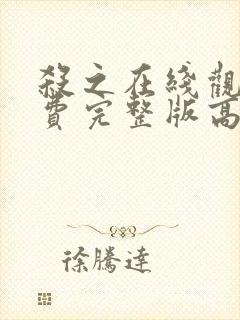 殺之在綫觀
費完整版高
徐騰達